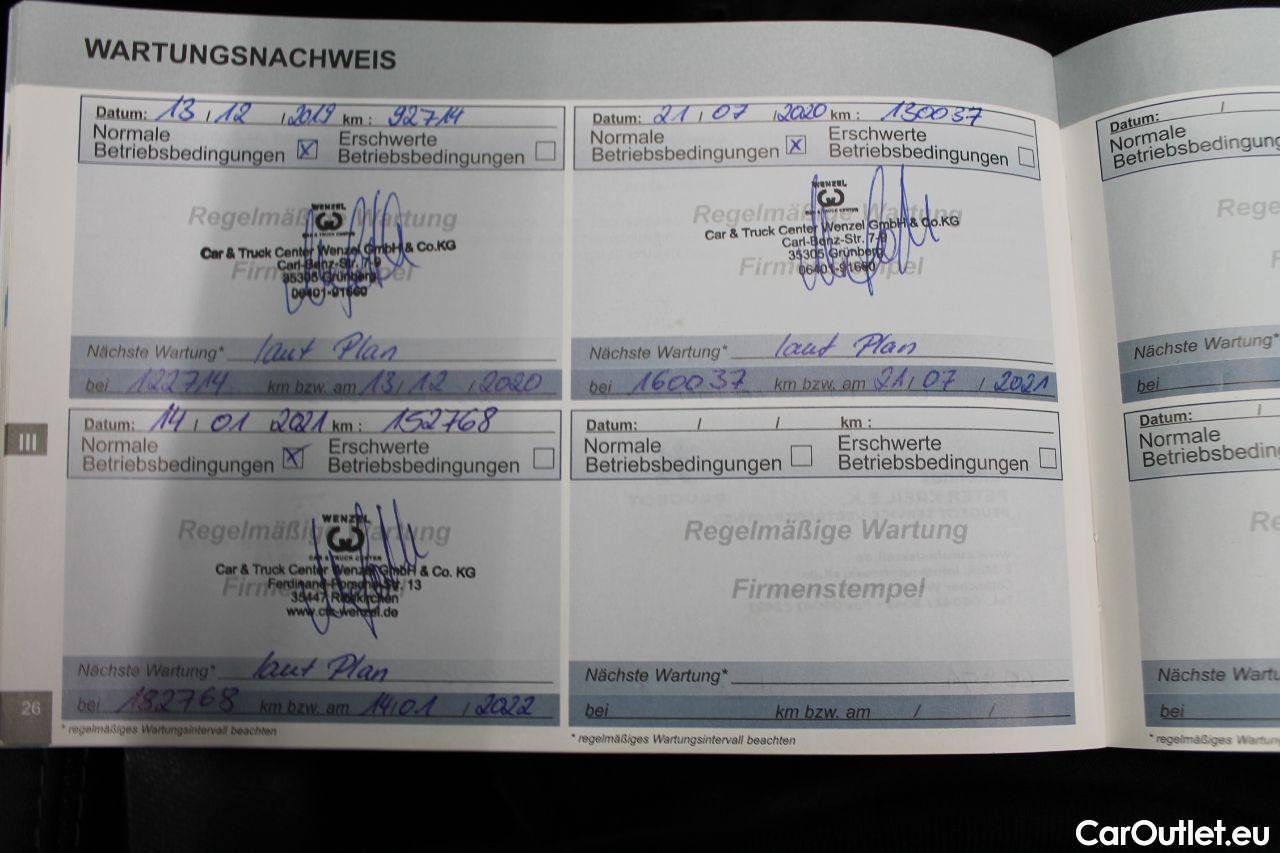 WARTUNGSNACHWEIS
Datum: 13 / 12 / 2019 km : 92714
Normale Betriebsbedingungen X Erschwerte Betriebsbedingungen
WENZEL
CAR & TRUCK CENTER
Regelmäßige Wartung
Car & Truck Center Wenzel GmbH & Co.KG
Carl-Benz-Str. 7-9
Firmenstempel
35305 Grünberg
06401-91660
Nächste Wartung* laut Plan
bei 122714 km bzw. am 13 / 12 / 2020
Datum: 21 / 07 / 2020 km : 130037
Normale Betriebsbedingungen X Erschwerte Betriebsbedingungen
WENZEL
CAR & TRUCK CENTER
Regelmäßige Wartung
Car & Truck Center Wenzel GmbH & Co.KG
Carl-Benz-Str. 7-9
35305 Grünberg
Firmenstempel
06401-91660
Nächste Wartung* laut Plan
bei 160037 km bzw. am 21 / 07 / 2021
III
Datum: 14 / 01 / 2021 km : 152768
Normale Betriebsbedingungen X Erschwerte Betriebsbedingungen
WENZEL
Regelmäßige Wartung
CAR & TRUCK CENTER
Car & Truck Center Wenzel GmbH & Co. KG
Ferdinand-Porsche-Str. 13
Firmenstempel
35447 Reiskirchen
www.ctc-wenzel.de
Nächste Wartung* laut Plan
bei 182768 km bzw. am 14 / 01 / 2022
* regelmäßiges Wartungsintervall beachten
Datum: / / km :
Normale Betriebsbedingungen Erschwerte Betriebsbedingungen
Regelmäßige Wartung
Firmenstempel
Nächste Wartung*
bei km bzw. am / /
* regelmäßiges Wartungsintervall beachten
26
Datum: /
Normale
Betriebsbedingung
Rege
Nächste Wartung*
bei
Datum: /
Normale
Betriebsbedin
Re
Nächste Wartu
bei
* regelmäßiges Wartun
CarOutlet.eu